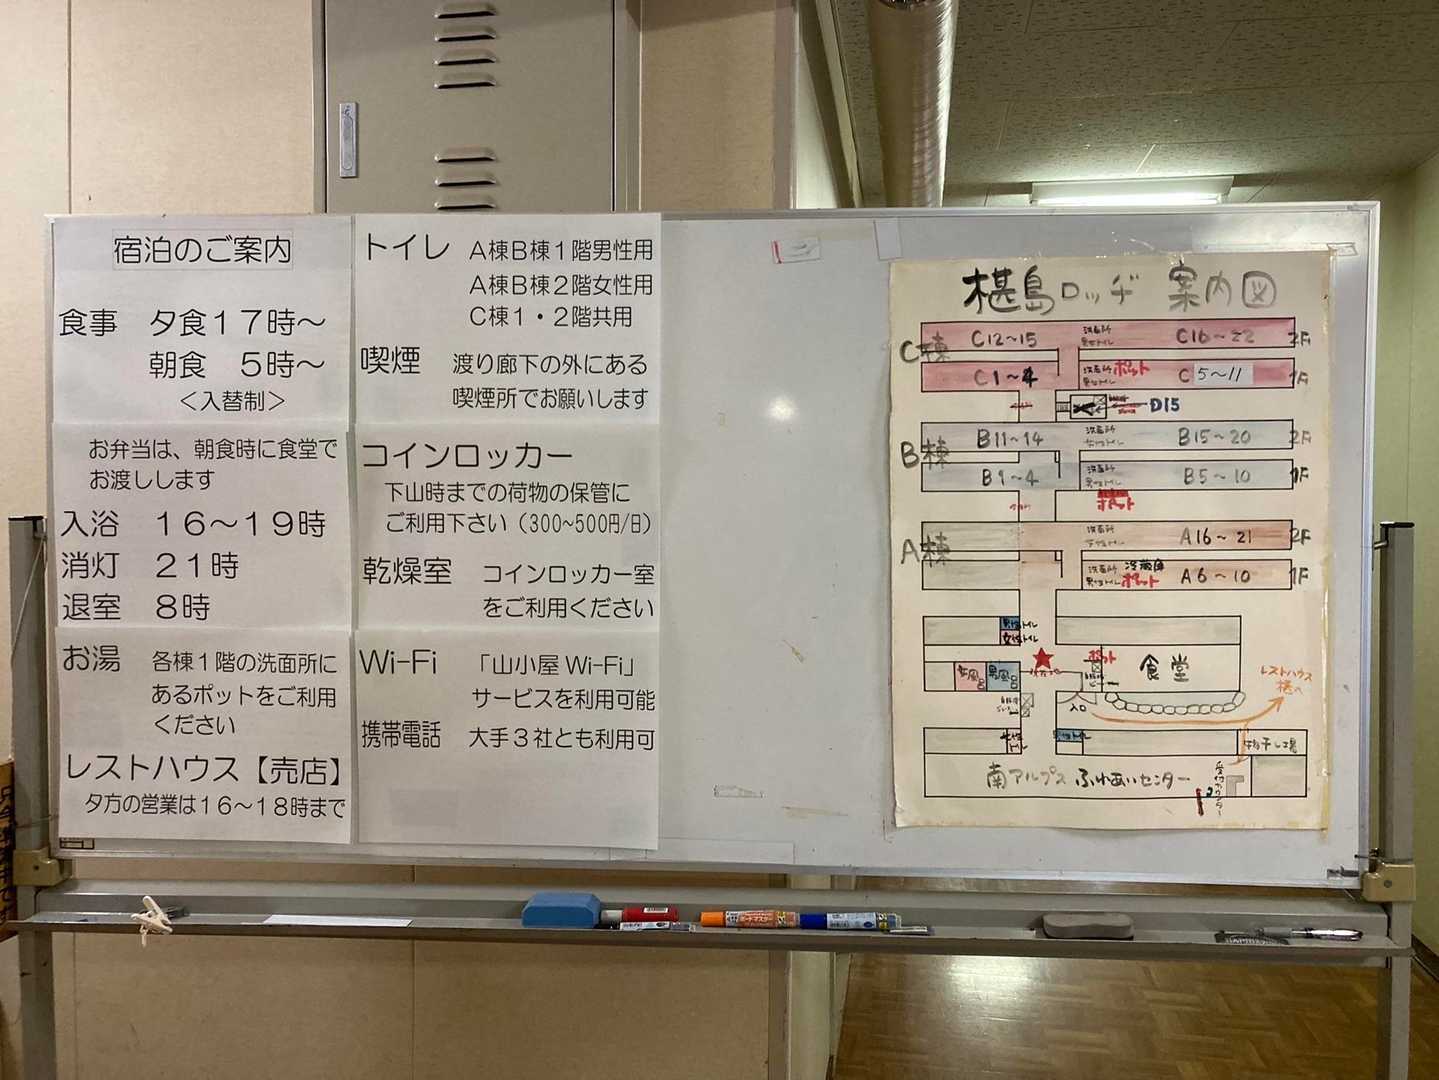 宿泊のご案内
食事 夕食１７時～
朝食 ５時～
＜入替制＞
お弁当は、朝食時に食堂で
お渡しします
入浴 １６～１９時
消灯 ２１時
退室 ８時
お湯 各棟１階の洗面所に
あるポットをご利用
ください
レストハウス【売店】
夕方の営業は１６～１８時まで
トイレ Ａ棟Ｂ棟１階男性用
Ａ棟Ｂ棟２階女性用
Ｃ棟１・２階共用
喫煙 渡り廊下の外にある
喫煙所でお願いします
コインロッカー
下山時までの荷物の保管に
ご利用下さい（300~500円/日）
乾燥室 コインロッカー室
をご利用ください
Wi-Fi 「山小屋 Wi-Fi」
サービスを利用可能
携帯電話 大手３社とも利用可
椹島ロッヂ 案内図
C棟
C12～15 洗面所 C16～22 2F
C1～4 洗面所 ポット C5～11 1F
D15
B棟
B11～14 洗面所 B15～20 2F
B1～4 洗面所 B5～10 1F
ポット
A棟
洗面所 A16～21 2F
洗面所 冷蔵庫 ポット A6～10 1F
男性トイレ
女性トイレ
ポット
女風呂 男風呂
食堂
入口
レストハウス
椹へ
女性トイレ
男性トイレ
物干し場
南アルプス ふれあいセンター
受付カウンター